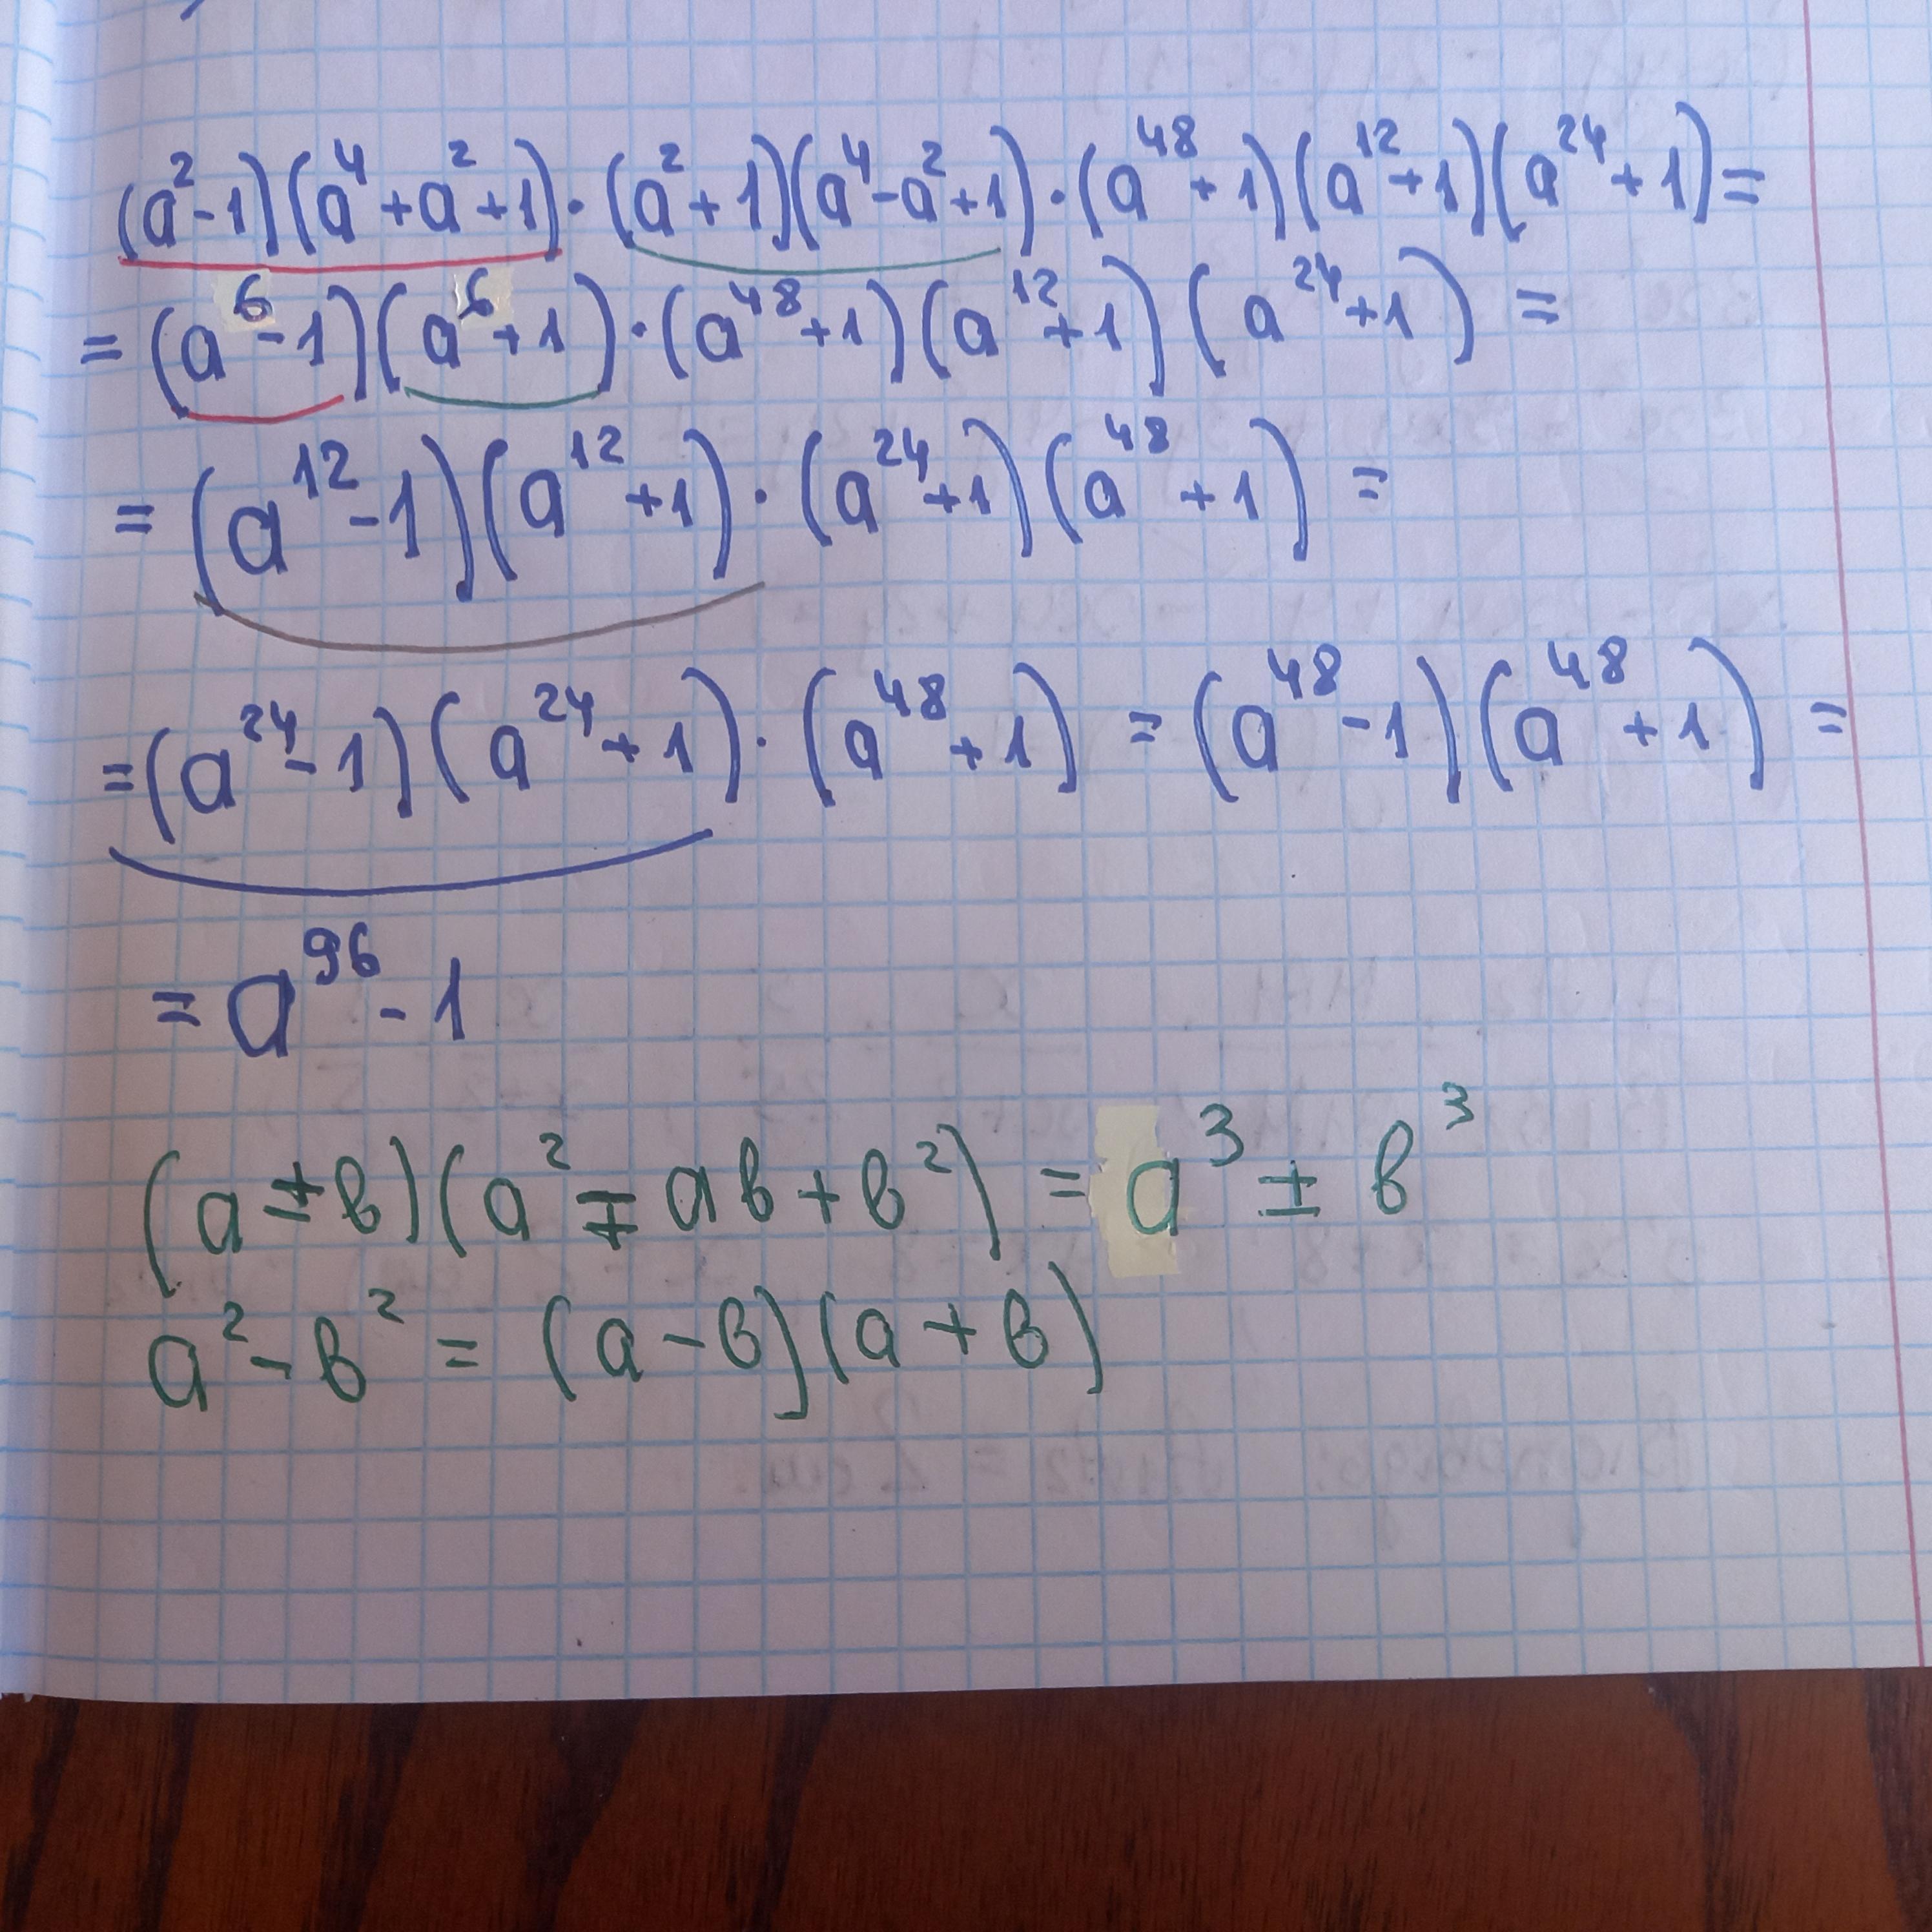 (a²-1)(a⁴+a²+1)·(a²+1)(a⁴-a²+1)·(a⁴⁸+1)(a¹²+1)(a²⁴+1)=
=(a⁶-1)(a⁶+1)·(a⁴⁸+1)(a¹²+1)(a²⁴+1)=
=(a¹²-1)(a¹²+1)·(a²⁴+1)(a⁴⁸+1)=
=(a²⁴-1)(a²⁴+1)·(a⁴⁸+1)=(a⁴⁸-1)(a⁴⁸+1)=
=a⁹⁶-1
(a±в)(a²∓aв+в²)=a³±в³
a²-в²=(a-в)(a+в)